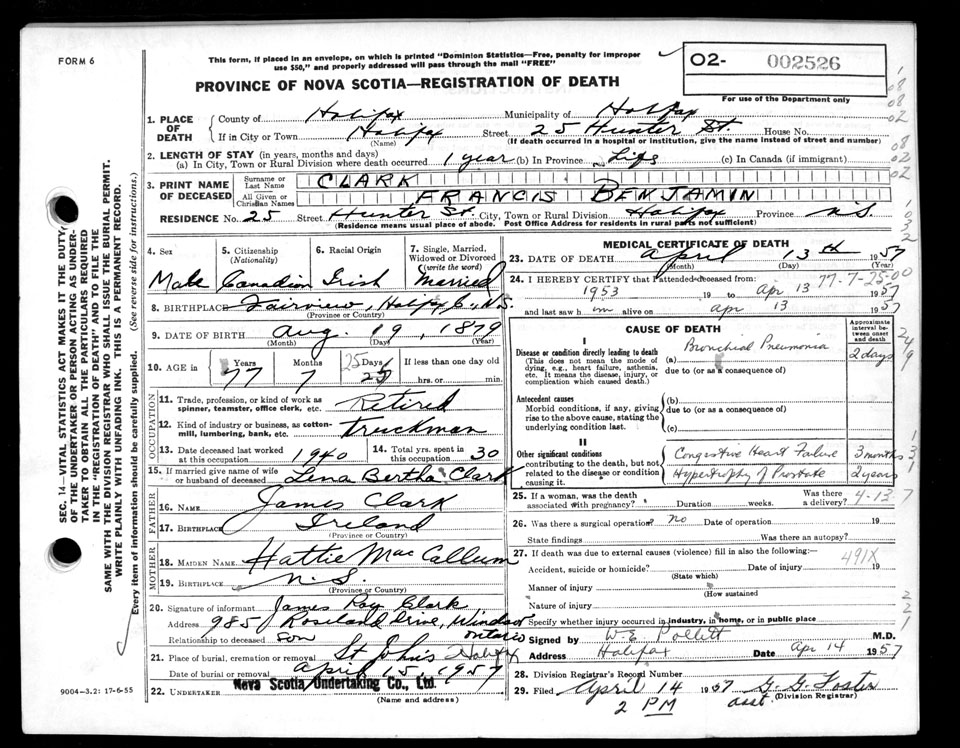 FORM 6
This form, if placed in an envelope, on which is printed "Dominion Statistics—Free, penalty for improper
use $50," and properly addressed will pass through the mail "FREE"
PROVINCE OF NOVA SCOTIA—REGISTRATION OF DEATH
O2- 002526
For use of the Department only
1. PLACE OF DEATH
County of Halifax Municipality of Halifax
If in City or Town Halifax Street 25 Hunter St. House No.
(Name) (If death occurred in a hospital or institution, give the name instead of street and number)
2. LENGTH OF STAY (in years, months and days)
(a) In City, Town or Rural Division where death occurred 1 year (b) In Province Life (c) In Canada (if immigrant)
3. PRINT NAME OF DECEASED
Surname or Last Name CLARK
All Given or Christian Names FRANCIS BENJAMIN
RESIDENCE No. 25 Street Hunter St. City, Town or Rural Division Halifax Province N.S.
(Residence means usual place of abode. Post Office Address for residents in rural parts not sufficient)
4. Sex Male
5. Citizenship (Nationality) Canadian
6. Racial Origin Irish
7. Single, Married, Widowed or Divorced (write the word) Married
8. BIRTHPLACE Fairview, Halifax Co. N.S.
(Province or Country)
9. DATE OF BIRTH Aug. 19, 1879
(Month) (Day) (Year)
10. AGE in Years Months Days If less than one day old
77 7 25 hrs. or min.
25
OCCUPATION
11. Trade, profession, or kind of work as
spinner, teamster, office clerk, etc. Retired
12. Kind of industry or business, as cotton-
mill, lumbering, bank, etc. Truckman
13. Date deceased last worked at this occupation 1940
14. Total yrs. spent in this occupation 30
15. If married give name of wife
or husband of deceased Lena Bertha Clark
FATHER
16. NAME James Clark
17. BIRTHPLACE Ireland
(Province or Country)
MOTHER
18. MAIDEN NAME Hattie MacCallum
19. BIRTHPLACE N.S.
(Province or Country)
20. Signature of informant James Roy Clark
Address 985 Roseland Drive, Windsor
Ontario
Relationship to deceased Son
21. Place of burial, cremation or removal St John's Halifax
Date of burial or removal April 15, 1957
22. UNDERTAKER Nova Scotia Undertaking Co., Ltd.
(Name and address)
9004—3.2: 17-6-55
MEDICAL CERTIFICATE OF DEATH
23. DATE OF DEATH April 13th 1957
(Month) (Day) (Year)
24. I HEREBY CERTIFY that I attended deceased from:
77-7-25-00
1953 19 to Apr 13 1957
and last saw h im alive on Apr 13 1957
CAUSE OF DEATH
Approximate interval between onset and death
I
Disease or condition directly leading to death
(This does not mean the mode of
dying, e.g., heart failure, asthenia,
etc. It means the disease, injury, or
complication which caused death.)
(a) Bronchial Pneumonia 2 days
due to (or as a consequence of)
Antecedent causes
Morbid conditions, if any, giving
rise to the above cause, stating the
underlying condition last.
(b)
due to (or as a consequence of)
(c)
II
Other significant conditions
contributing to the death, but not
related to the disease or condition
causing it.
Congestive Heart Failure 3 months
Hypertrophy of Prostate 2 years
25. If a woman, was the death
associated with pregnancy? Duration weeks. Was there a delivery? 4-13-7
26. Was there a surgical operation? no Date of operation 19
State findings Was there an autopsy?
27. If death was due to external causes (violence) fill in also the following:—
491X
Accident, suicide or homicide? Date of injury 19
(State which)
Manner of injury
(How sustained
Nature of injury
Specify whether injury occurred in industry, in home, or in public place
Signed by W E Pollett M.D.
Address Halifax Date Apr 14 1957
28. Division Registrar's Record Number
29. Filed April 14 1957 G. G. Foster
(Division Registrar)
2 PM asst.
SEC. 14—VITAL STATISTICS ACT MAKES IT THE DUTY,
OF THE UNDERTAKER OR PERSON ACTING AS UNDER-
TAKER TO OBTAIN ALL THE PARTICULARS REQUIRED
IN THE "REGISTRATION OF DEATH" AND TO FILE THE
SAME WITH THE DIVISION REGISTRAR WHO SHALL ISSUE THE BURIAL PERMIT.
WRITE PLAINLY WITH UNFADING INK. THIS IS A PERMANENT RECORD.
Every item of information should be carefully supplied. (See reverse side for instructions.)